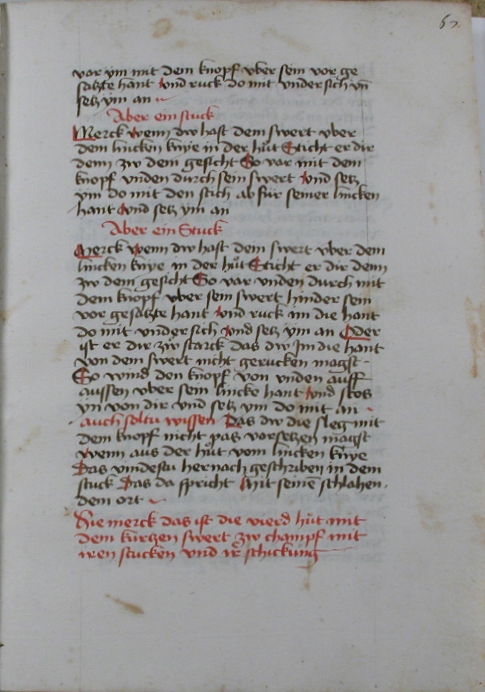 62
var ym mit dem knopf vber sein vor ge
satzte hant vnd ruck do mit vndersich vn̄
setz ym an
Aber ein stuck
Merck wenn dw hast dein swert vber
dem lincken knye in der hůt Sticht er dir
denn zw dem gesicht So var mit dem
knopf vnden durch sein swert vnd setz
ym do mit den stich ab für seiner lincken
hant vnd setz ym an
Aber ein Stuck
Merck wenn dw hast dein swert vber dem
lincken knye in der hůt Sticht er dir denn
zw dem gesicht So var vnden durch mit
dem knopf vber sein swert hinder sein
vor gesatzte hant vnd ruck im die hant
do mit vndersich vnd setz ym an Oder
ist er dir zw starck das dw Im die hant
von dem swert nicht gerucken magst
So wind den knopf von vnden auff
aussen vber sein lincke hant vnd stos
yn von dir vnd setz ym do mit an
auch soltu wissen Das dw die sleg mit
dem knopf nicht pas vorsetzen magst
wenn aus der hůt vom lincken knye
Das vindestu hernach geschriben in dem
stuck Das da spricht Mit seinē schlahen
dem ort
Hie merck das ist die vierd hůt mit
dem kurtzen swert zw champf mit
iren stucken vnd ir schickung